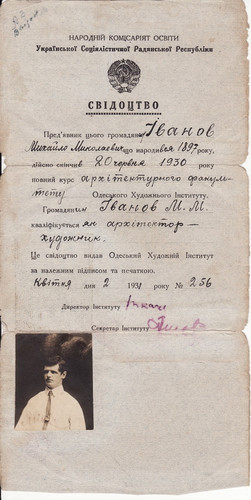 НАРОДНІЙ КОМІСАРІЯТ ОСВІТИ
Української Соціялістичної Радянської Республіки
СВІДОЦТВО
Пред'явник цього громадянин Іванов
Михайло Миколаевич що народився 1897 року,
дійсно скінчив 20 червня 1930 року
повний курс архітектурного факуль-
тету Одеського Художнього Інституту.
Громадянин Іванов М. М.
кваліфікується як архітектор-
художник.
Це свідоцтво видав Одеський Художній Інститут
на належним підписом та печаткою.
Квітня дня 2 1931 року № 256
Директор Інституту
Секретар Інституту